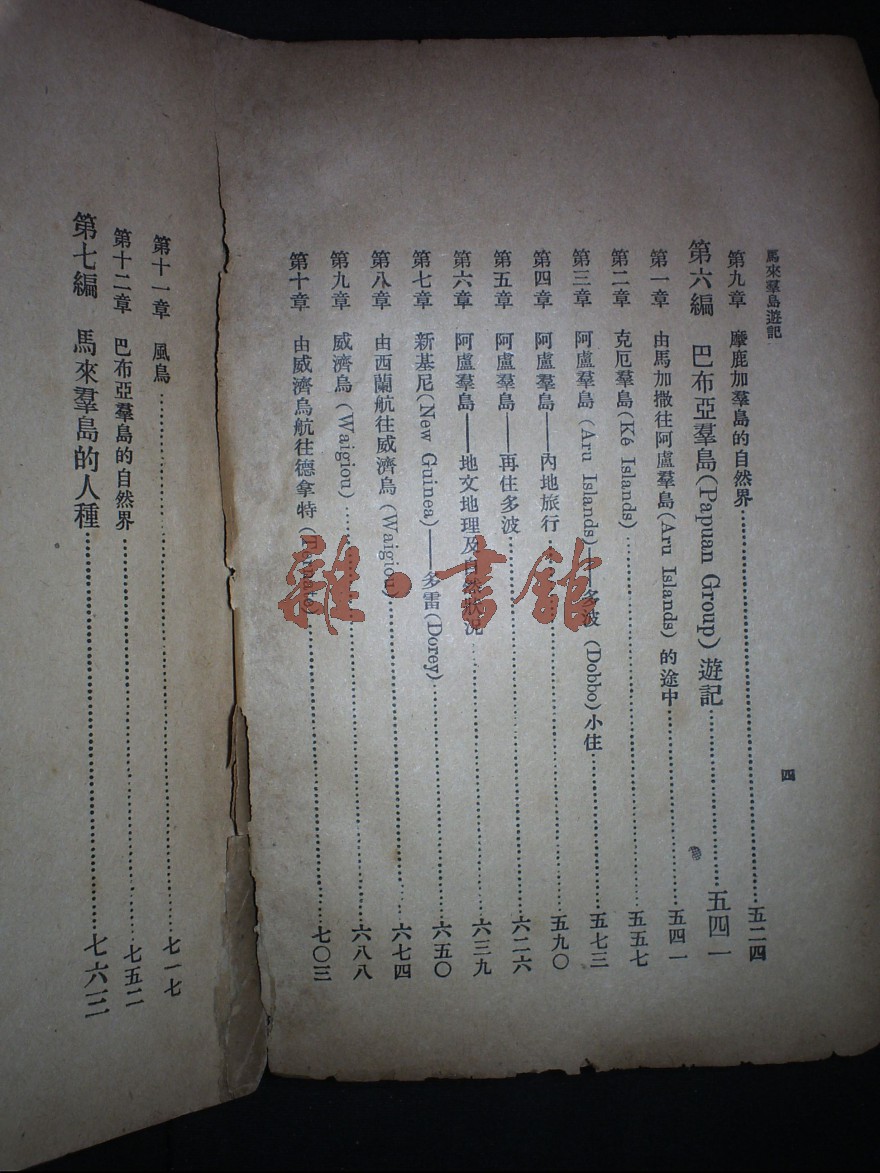 馬來羣島遊記
四
第九章 摩鹿加羣島的自然界……五二四
第六編 巴布亞羣島(Papuan Group)遊記……五四一
第一章 由馬加撒往阿盧羣島(Aru Islands)的途中……五四一
第二章 克厄羣島(Ké Islands)……五五七
第三章 阿盧羣島(Aru Islands)——多波(Dobbo)小住……五七三
第四章 阿盧羣島——內地旅行……五九〇
第五章 阿盧羣島——再住多波……六二六
第六章 阿盧羣島——地文地理及自然狀況……六三九
第七章 新基尼(New Guinea)——多雷(Dorey)……六五〇
第八章 由西蘭航往威濟烏(Waigiou)……六七四
第九章 威濟烏(Waigiou)……六八八
第十章 由威濟烏航往德拿特……七〇三
雜·書館
第十一章 風鳥……七一七
第十二章 巴布亞羣島的自然界……七五二
第七編 馬來羣島的人種……七六三